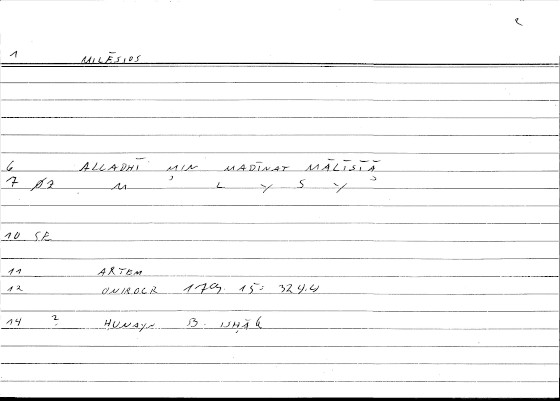 1 MILĒSIOS
6 ALLADHĪ MIN MADĪNAT MĀLĪSIĀ
7 Ø2 M L Y S Y
10 SE
11 ARTEM
12 ONIROCR 179. 15: 324.4
14 ? HUNAYN B. ISḤĀQ